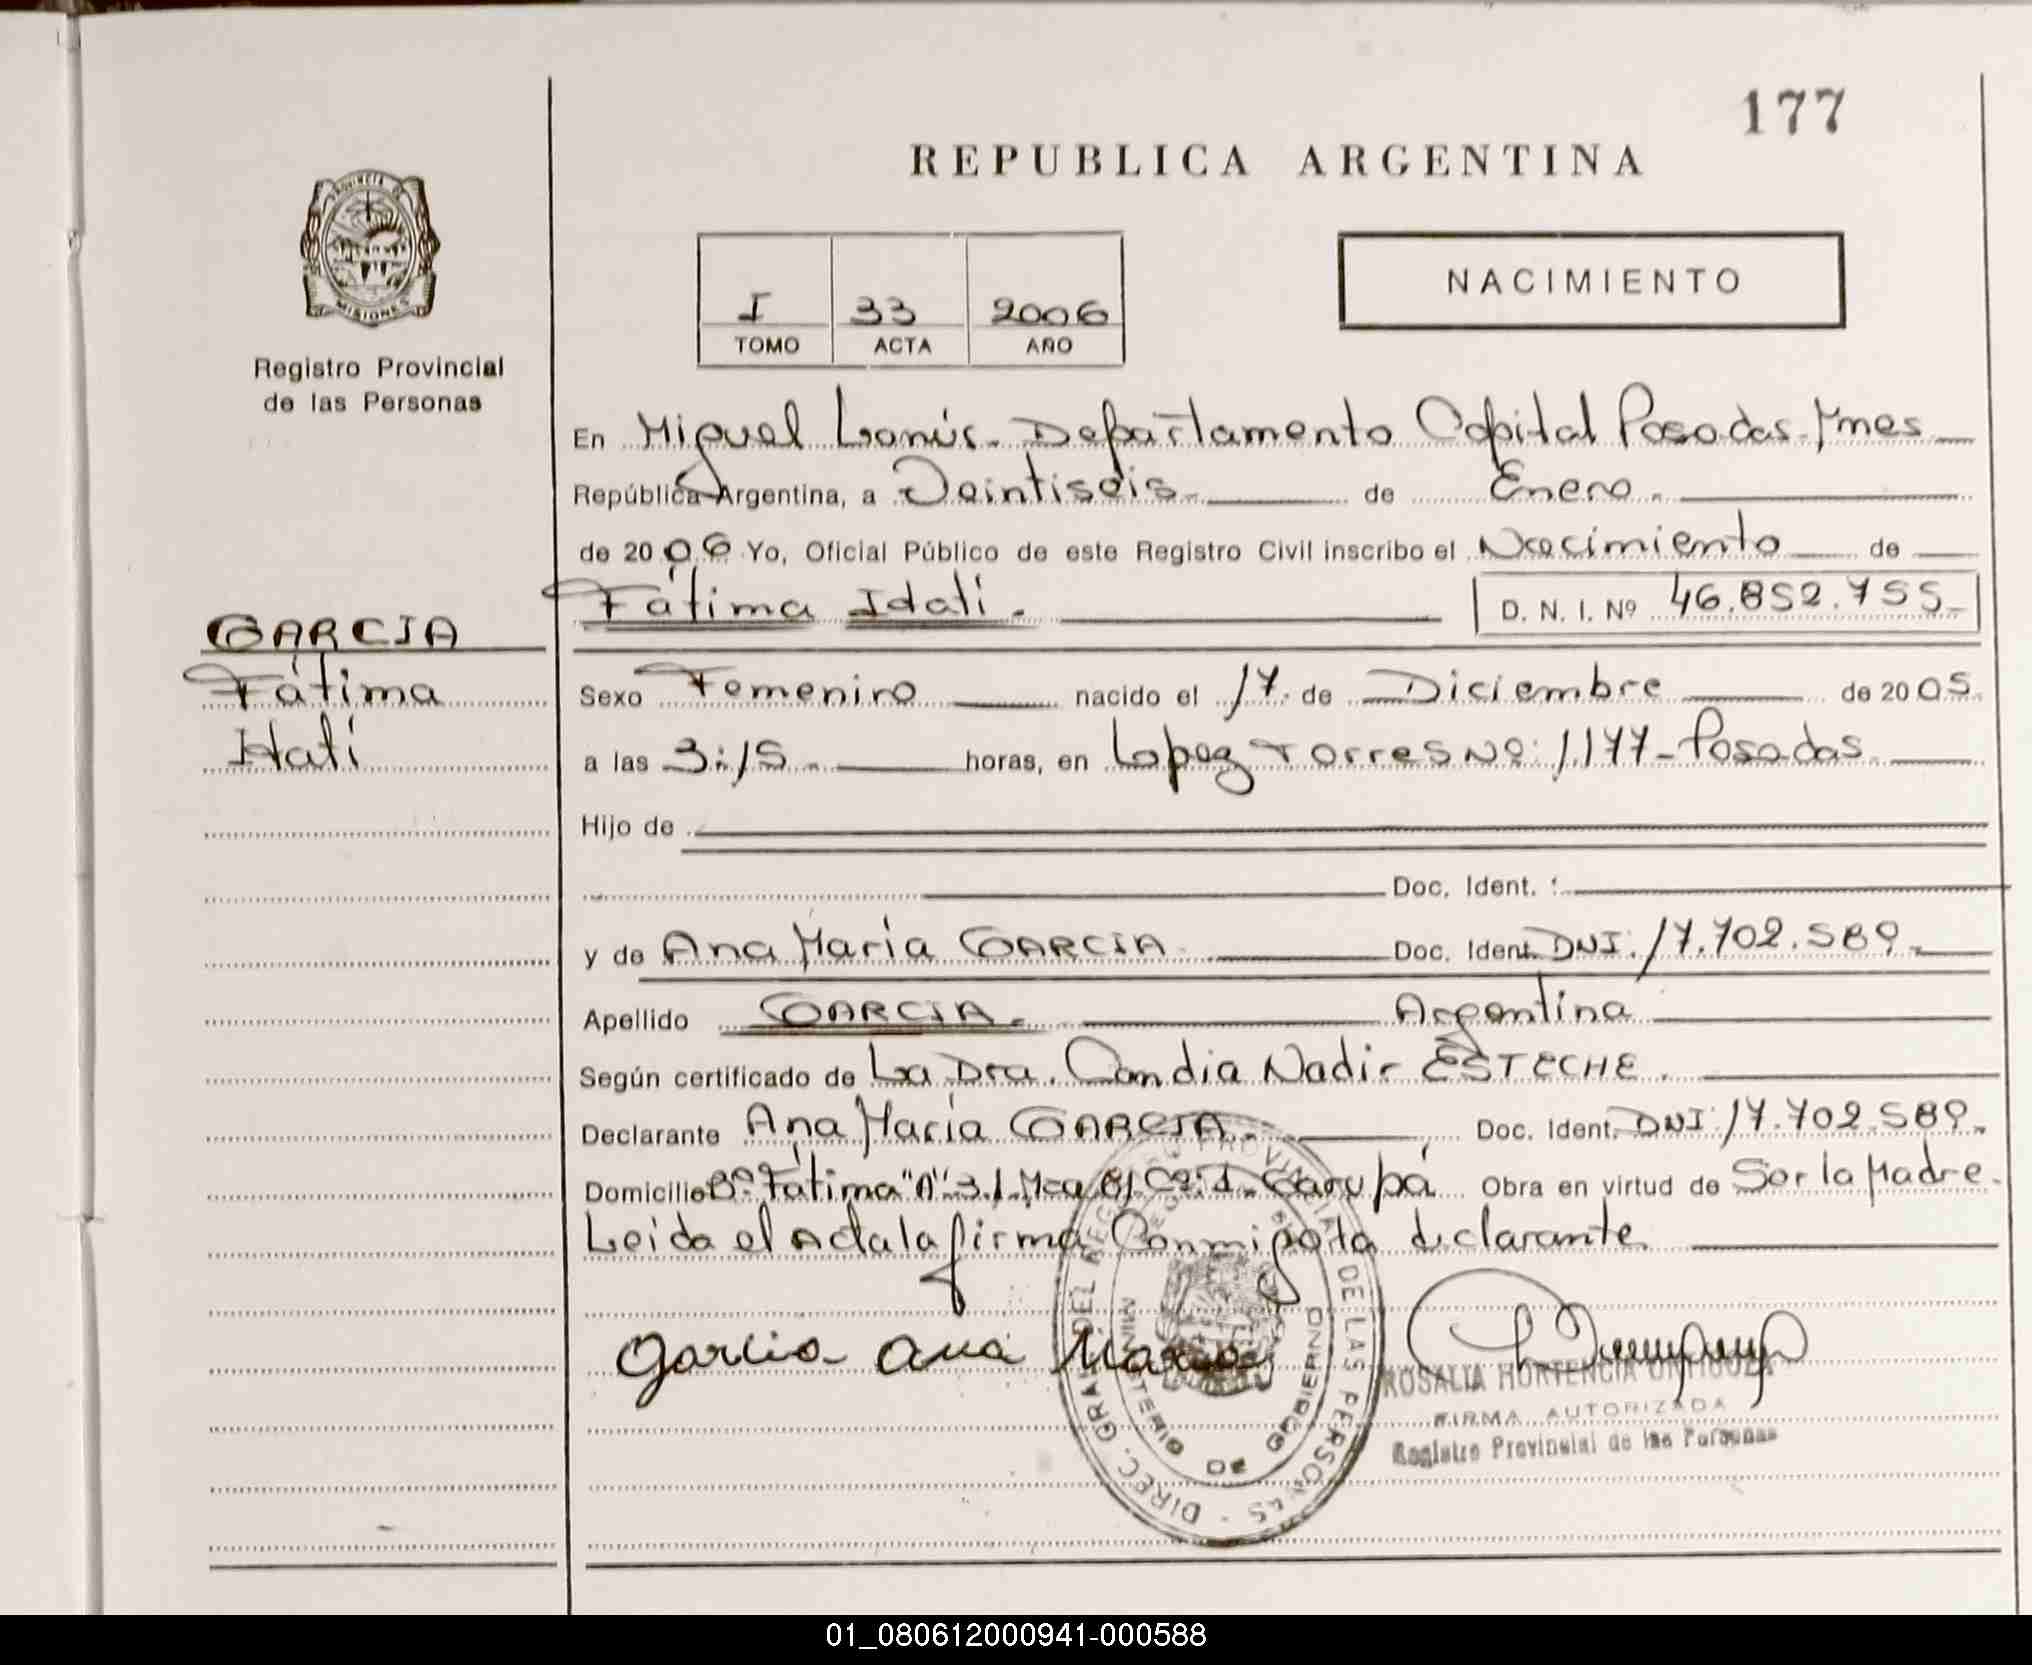 177
REPUBLICA ARGENTINA
PROVINCIA DE
MISIONES
Registro Provincial
de las Personas
I 33 2006
TOMO ACTA AÑO
NACIMIENTO
En Miguel Lanús. Departamento Capital Posadas Mnes
República Argentina, a Veintiseis. de Enero.
de 2006 Yo, Oficial Público de este Registro Civil inscribo el Nacimiento de
Fátima Itatí. D. N. I. Nº 46.852.755.
GARCIA
Fátima
Itatí
Sexo Femenino nacido el 17. de Diciembre de 2005.
a las 3:15. horas, en Lopez Torres Nº: 1.177 - Posadas.
Hijo de
Doc. Ident. :
y de Ana María GARCIA Doc. Ident. DNI: 17.702.589.
Apellido GARCIA. Argentina
Según certificado de La Dra. Candia Nadir ESTECHE.
Declarante Ana María GARCIA. Doc. Ident. DNI: 17.702.589.
Domicilio Bº Fátima "A" 31 Mza 81 Cº: 1. Garupá Obra en virtud de Ser la Madre.
Leida el Acta la firma Conmigo la declarante
Garcia Ana Maria
DIREC. GRAL. DEL REGISTRO PROVINCIAL DE LAS PERSONAS -
MINISTERIO DE GOBIERNO
ROSALIA HORTENCIA
FIRMA AUTORIZADA
Registro Provincial de las Personas
01_080612000941-000588